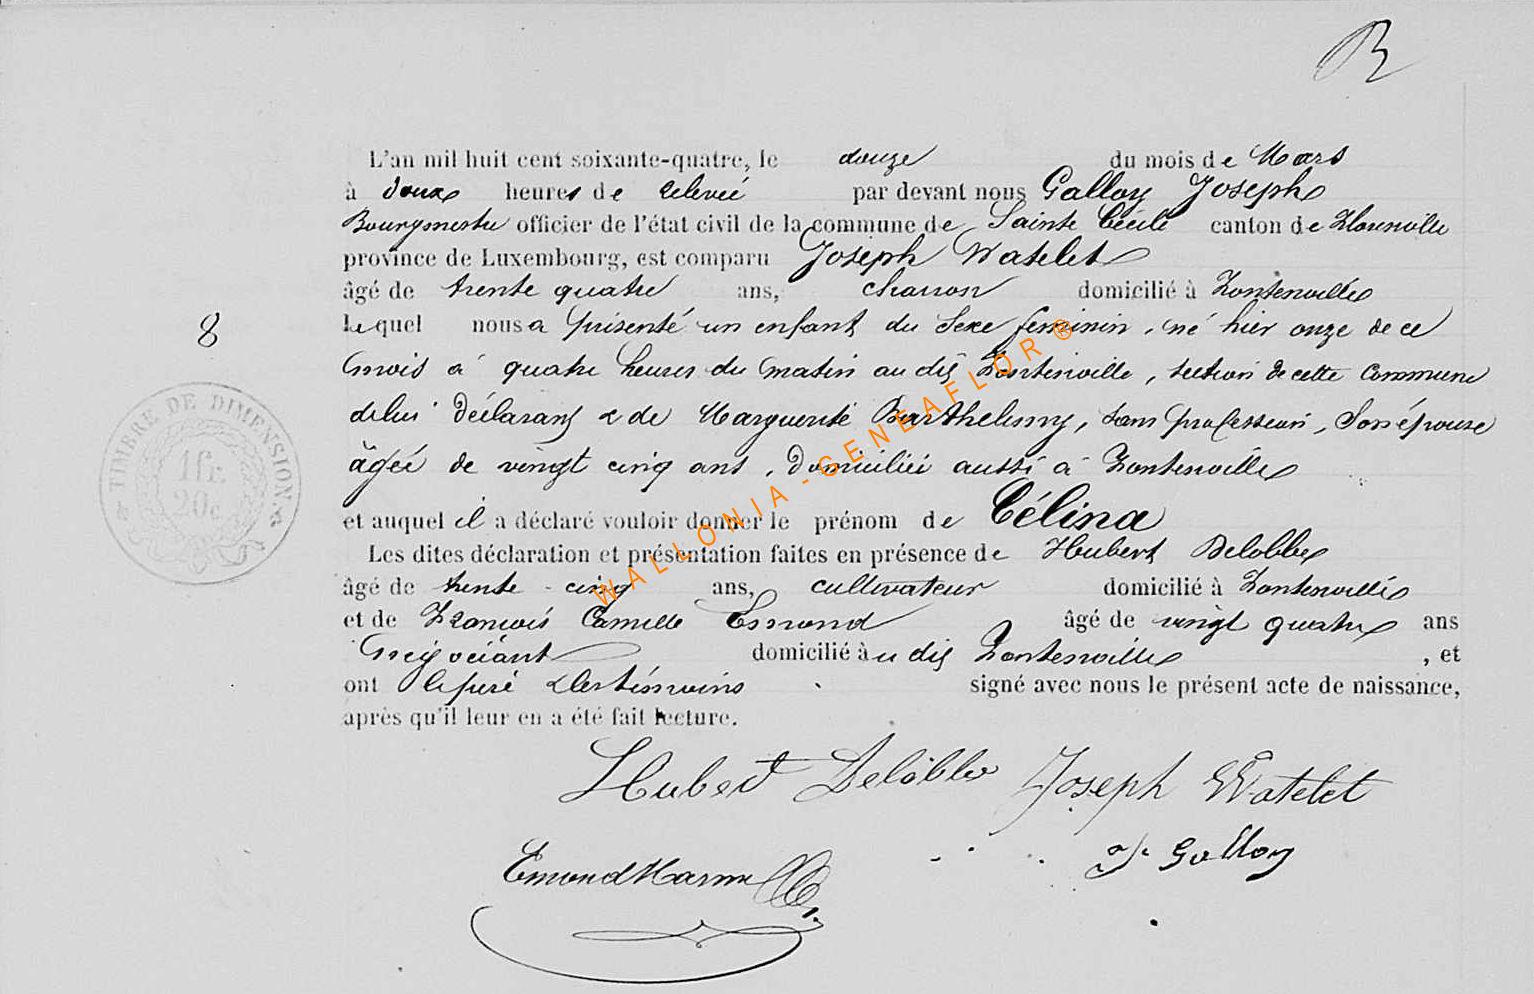 B
L'an mil huit cent soixante-quatre, le douze du mois de Mars
à deux heures de relevée par devant nous Galloy Joseph
Bourgmestre officier de l'état civil de la commune de Sainte Cécile canton de Florenville
province de Luxembourg, est comparu Joseph Watelet
âgé de trente quatre ans, charron domicilié à Fontenoille
lequel nous a présenté un enfant du sexe feminin, né hier onze de ce
8
mois à quatre heures du matin au dit Fontenoille, section de cette commune
de lui déclarant & de Marguerite Barthelemy, sans profession, son épouse
âgée de vingt cinq ans, domiciliée aussi à Fontenoille
TIMBRE DE DIMENSION.
1fr.
20c
et auquel il a déclaré vouloir donner le prénom de Célina
Les dites déclaration et présentation faites en présence de Hubert Delobbe
âgé de trente-cinq ans, cultivateur domicilié à Fontenoille
et de François Camille Emond âgé de vingt quatre ans
Négociant domicilié à u dit Fontenoille, et
ont le père & les témoins signé avec nous le présent acte de naissance,
après qu'il leur en a été fait lecture.
Hubert Delobbe Joseph Watelet
Emond J. Galloy
WALLONIA-GENEAFLOR®